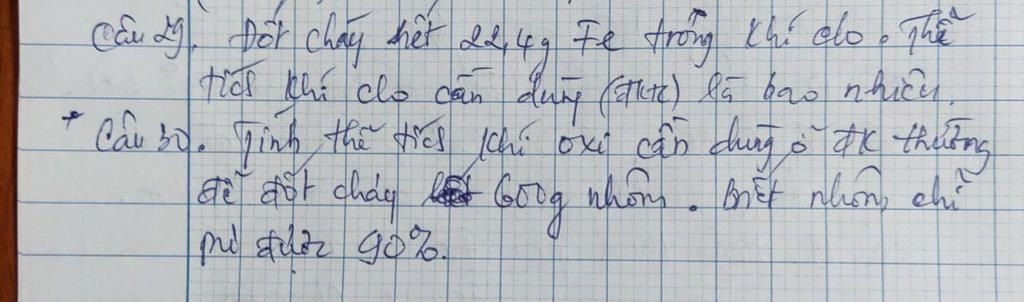 Câu 29. Đốt cháy hết 22,4g Fe trong khí clo. Thể
tích khí clo cần dùng (đktc) là bao nhiêu.
* Câu 30. Tính thể tích khí oxi cần dùng ở đk thường
để đốt cháy 600g nhôm. Biết nhôm chỉ
pư được 90%.